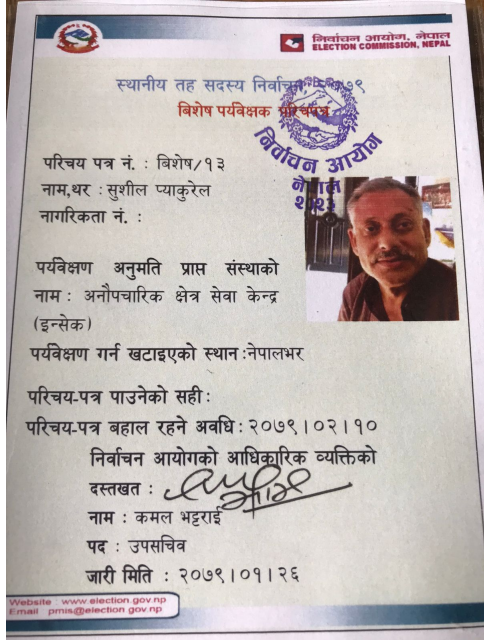 निर्वाचन आयोग, नेपाल
ELECTION COMMISSION, NEPAL
स्थानीय तह सदस्य निर्वाचन, २०७९
बिशेष पर्यवेक्षक परिचयपत्र
निर्वाचन आयोग
नेपाल
परिचय पत्र नं. : बिशेष/१३
नाम,थर : सुशील प्याकुरेल
नागरिकता नं. :
पर्यवेक्षण अनुमति प्राप्त संस्थाको
नाम : अनौपचारिक क्षेत्र सेवा केन्द्र
(इन्सेक)
पर्यवेक्षण गर्न खटाइएको स्थान :नेपालभर
परिचय-पत्र पाउनेको सही :
परिचय-पत्र बहाल रहने अवधि : २०७९।०२।१०
निर्वाचन आयोगको आधिकारिक व्यक्तिको
दस्तखत :
नाम : कमल भट्टराई
पद : उपसचिव
जारी मिति : २०७९।०१।२६
Website : www.election.gov.np
Email pmis@election gov.np